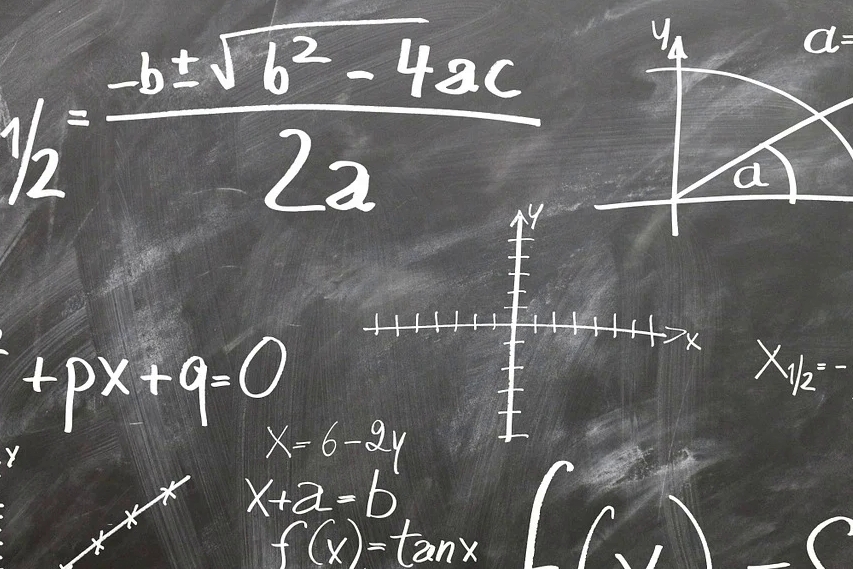 1/2 = -b ± √b² - 4ac
2a
y
a=
a
y
x
+px+q=0
X1/2=-
y
X=6-2y
x+a=b
f(x)=tanx